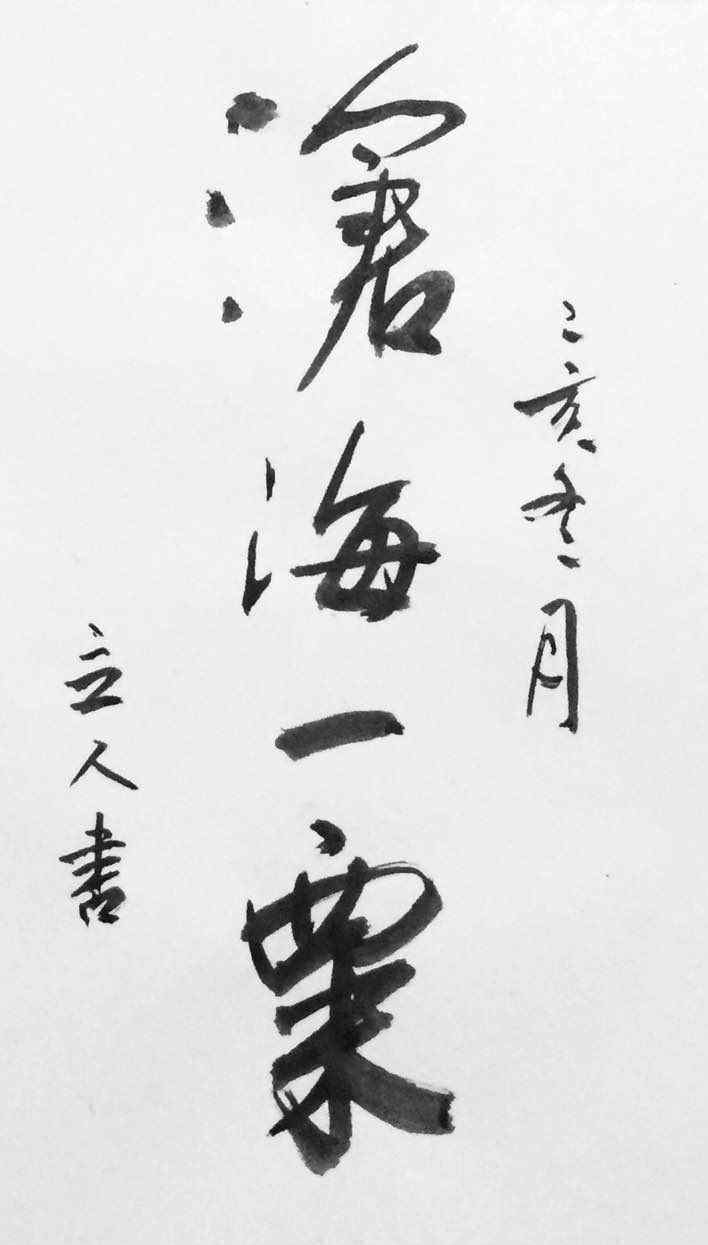 己亥冬月
滄海一粟
立人書